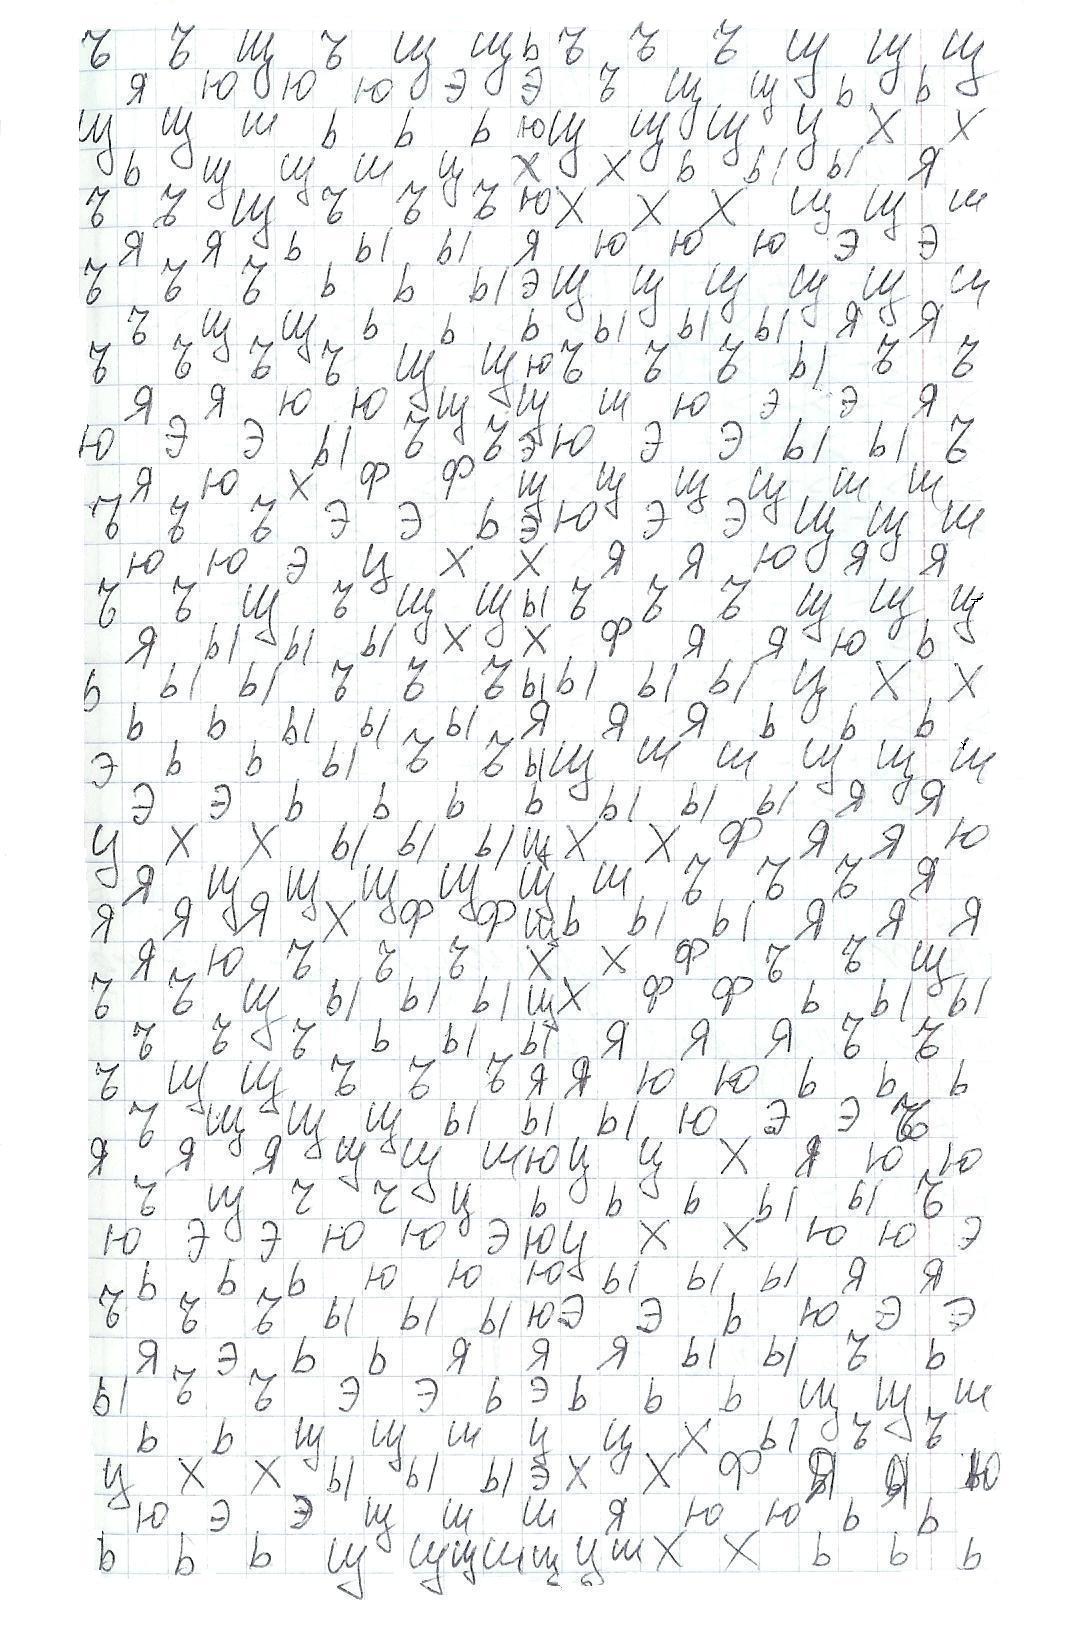 Ъ Ъ Щ Ъ Щ Щ Ь Ъ Ъ Ъ Щ Щ Щ
Я Ю Ю Ю Э Э Ъ Щ Щ Ь Ь
Щ Щ Ш Ь Ь Ь Ю Щ Щ Щ Ц Х Х
Ь Щ Щ Ш Ц Х Х Ь Ы Ы Я
Ъ Ъ Щ Ъ Ъ Ъ Ю Х Х Х Щ Щ Ш
Я Я Ь Ы Ы Я Ю Ю Ю Э Э
Ъ Ъ Ъ Ь Ь Ы Э Щ Щ Щ Щ Щ Ш
Ъ Щ Щ Ь Ь Ь Ы Ы Ы Я Я
Ъ Ъ Ъ Ъ Щ Щ Ю Ъ Ъ Ъ Ы Ъ Ъ
Я Я Ю Ю Щ Щ Ш Ю Э Э Я
Ю Э Э Ы Ъ Ъ Э Ю Э Э Ы Ы Ъ
Я Ю Х Ф Ф Щ Щ Щ Щ Ш Ш
Ъ Ъ Ъ Э Э Ь Э Ю Э Э Щ Щ Ш
Ю Ю Э Ц Х Х Я Я Ю Я Я
Ъ Ъ Щ Ъ Щ Щ Ы Ъ Ъ Ъ Щ Щ Щ
Я Ы Ы Ы Х Х Ф Я Я Ю Ь
Ь Ы Ы Ъ Ъ Ъ Ы Ы Ы Ы Ц Х Х
Ь Ь Ы Ы Ы Я Я Я Ь Ь Ь
Э Ь Ь Ы Ъ Ъ Ы Щ Ш Ш Щ Щ Ш
Э Э Ь Ь Ь Ь Ы Ы Ы Я Я
Ц Х Х Ы Ы Ы Щ Х Х Ф Я Я Ю
Я Щ Щ Щ Щ Щ Ш Ъ Ъ Ъ Я
Я Я Я Х Ф Ф Щ Ь Ы Ы Я Я Я
Я Ю Ъ Ъ Ъ Х Х Ф Ъ Ъ Щ
Ъ Ъ Щ Ы Ы Ы Щ Х Ф Ф Ь Ы Ы
Ъ Ъ Ъ Ь Ы Ы Я Я Я Ъ Ъ
Ъ Щ Щ Ъ Ъ Ъ Я Я Ю Ю Ь Ь Ь
Ъ Щ Щ Щ Ы Ы Ы Ю Э Э Ъ
Я Я Я Щ Щ Ш Ю Ц Ц Х Я Ю Ю
Ъ Щ Ъ Ъ Ц Ь Ь Ь Ы Ы Ъ
Ю Э Э Ю Ю Э Ю Ц Х Х Ю Ю Э
Ь Ь Ь Ю Ю Ю Ы Ы Ы Я Я
Ъ Ъ Ъ Ы Ы Ы Ю Э Э Ь Ю Э Э
Я Э Ь Ь Я Я Я Ы Ы Ъ Ь
Ы Ъ Ъ Э Э Ь Э Ь Ь Ь Щ Щ Ш
Ь Ь Щ Щ Ш Ц Ц Х Ы Ъ Ъ
Ц Х Х Ы Ы Ы Э Х Х Ф Я Я Ю
Ю Э Э Щ Ш Ш Я Ю Ю Ь Ь
Ь Ь Ь Щ Щ Щ Ш Щ Ц Ш Х Х Ь Ь Ь